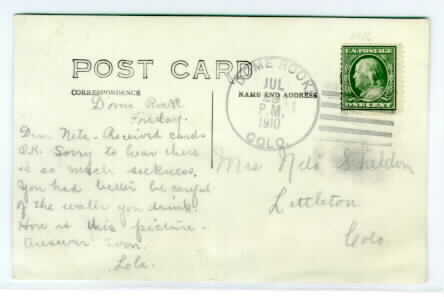 POST CARD
CORRESPONDENCE
NAME AND ADDRESS
Dome Rock
Friday.
Dear Nete - Received cards
O.K. Sorry to hear there
is so much sickness.
You had better be careful
of the water you drink.
How is this picture.
Answer soon.
Lola.
DOME ROCK
JUL
29
P.M.
1910
COLO.
U.S. POSTAGE
ONE CENT
Mrs Nete Sheldon
Littleton
Colo